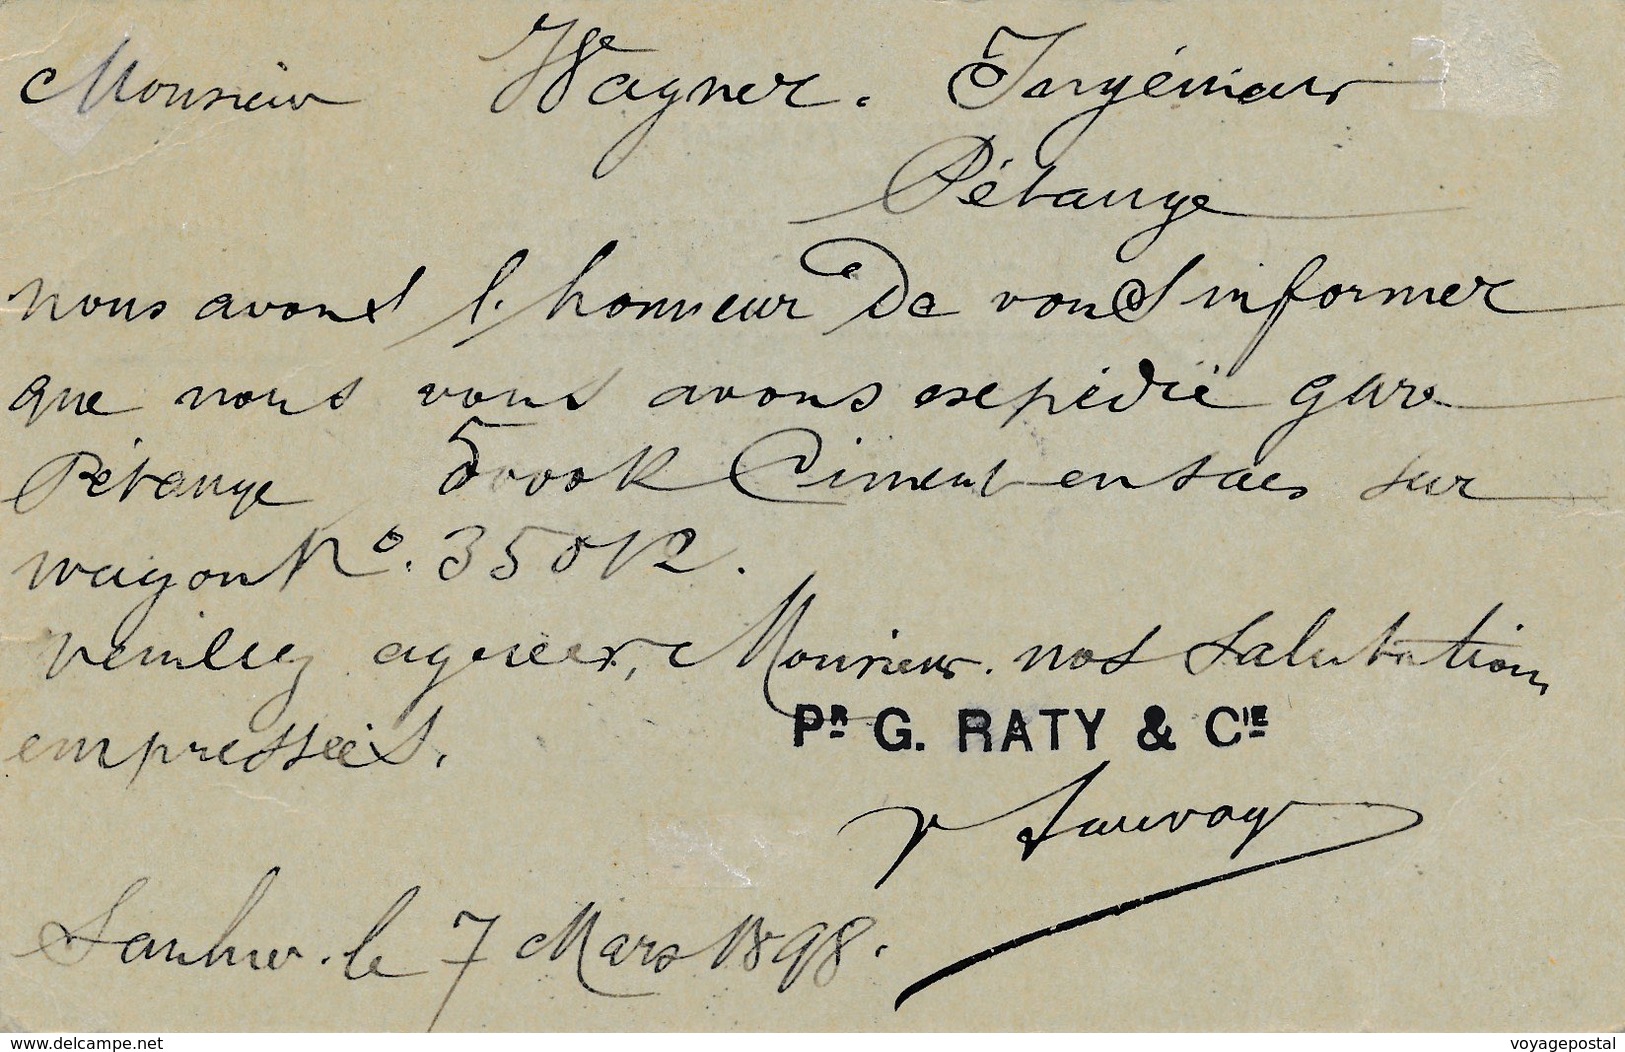 Monsieur Wagner. Ingénieur
Pétange
nous avons l'honneur De vous informer
que nous vous avons expédié gare
Pétange 5000k Ciment en sacs sur
wagon No. 35012.
veuillez agréer, Monsieur nos salutations
empressées.
PR G. RATY & CIE
Saulnes. le 7 Mars 1898.
www.delcampe.net
voyagepostal